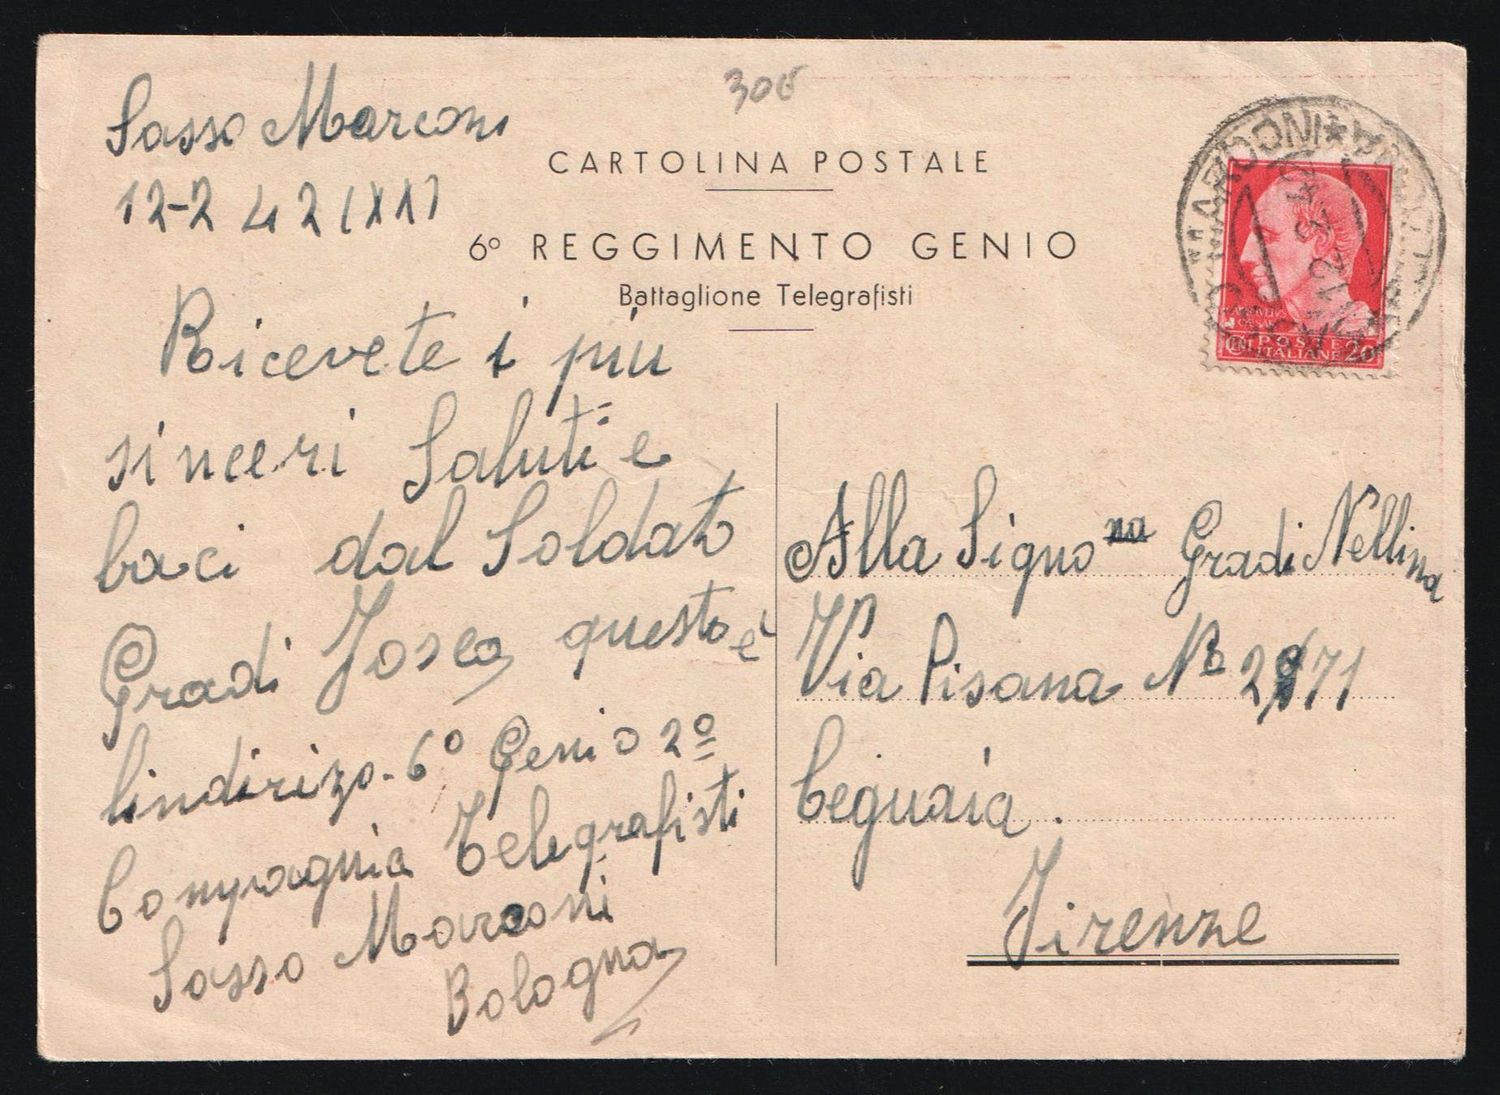 306
Sasso Marconi
12-2 42 (XX)
CARTOLINA POSTALE
6° REGGIMENTO GENIO
Battaglione Telegrafisti
Ricevete i più
sinceri Saluti e
baci dal Soldato
Gradi Josco questo è
lindirizo. 6° Genio 2°
Compagnia Telegrafisti
Sasso Marconi
Bologna
MARCONI * 
12.2.42
POSTE
ITALIANE
Alla Signo na Gradi Nellina
Via Pisana No 271
Ceguaia.
Firenze